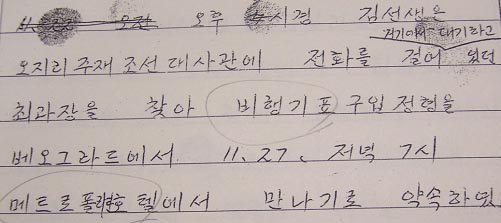 오후 시경 김선생은
거기에서 대기하라고
오지리 주재 조선 대사관에 전화를 걸어 있던
최과장을 찾아 비행기표 구입정형을
베오그라드에서 11.27. 저녁 7시
메트로폴리탄호텔에서 만나기로 약속하였